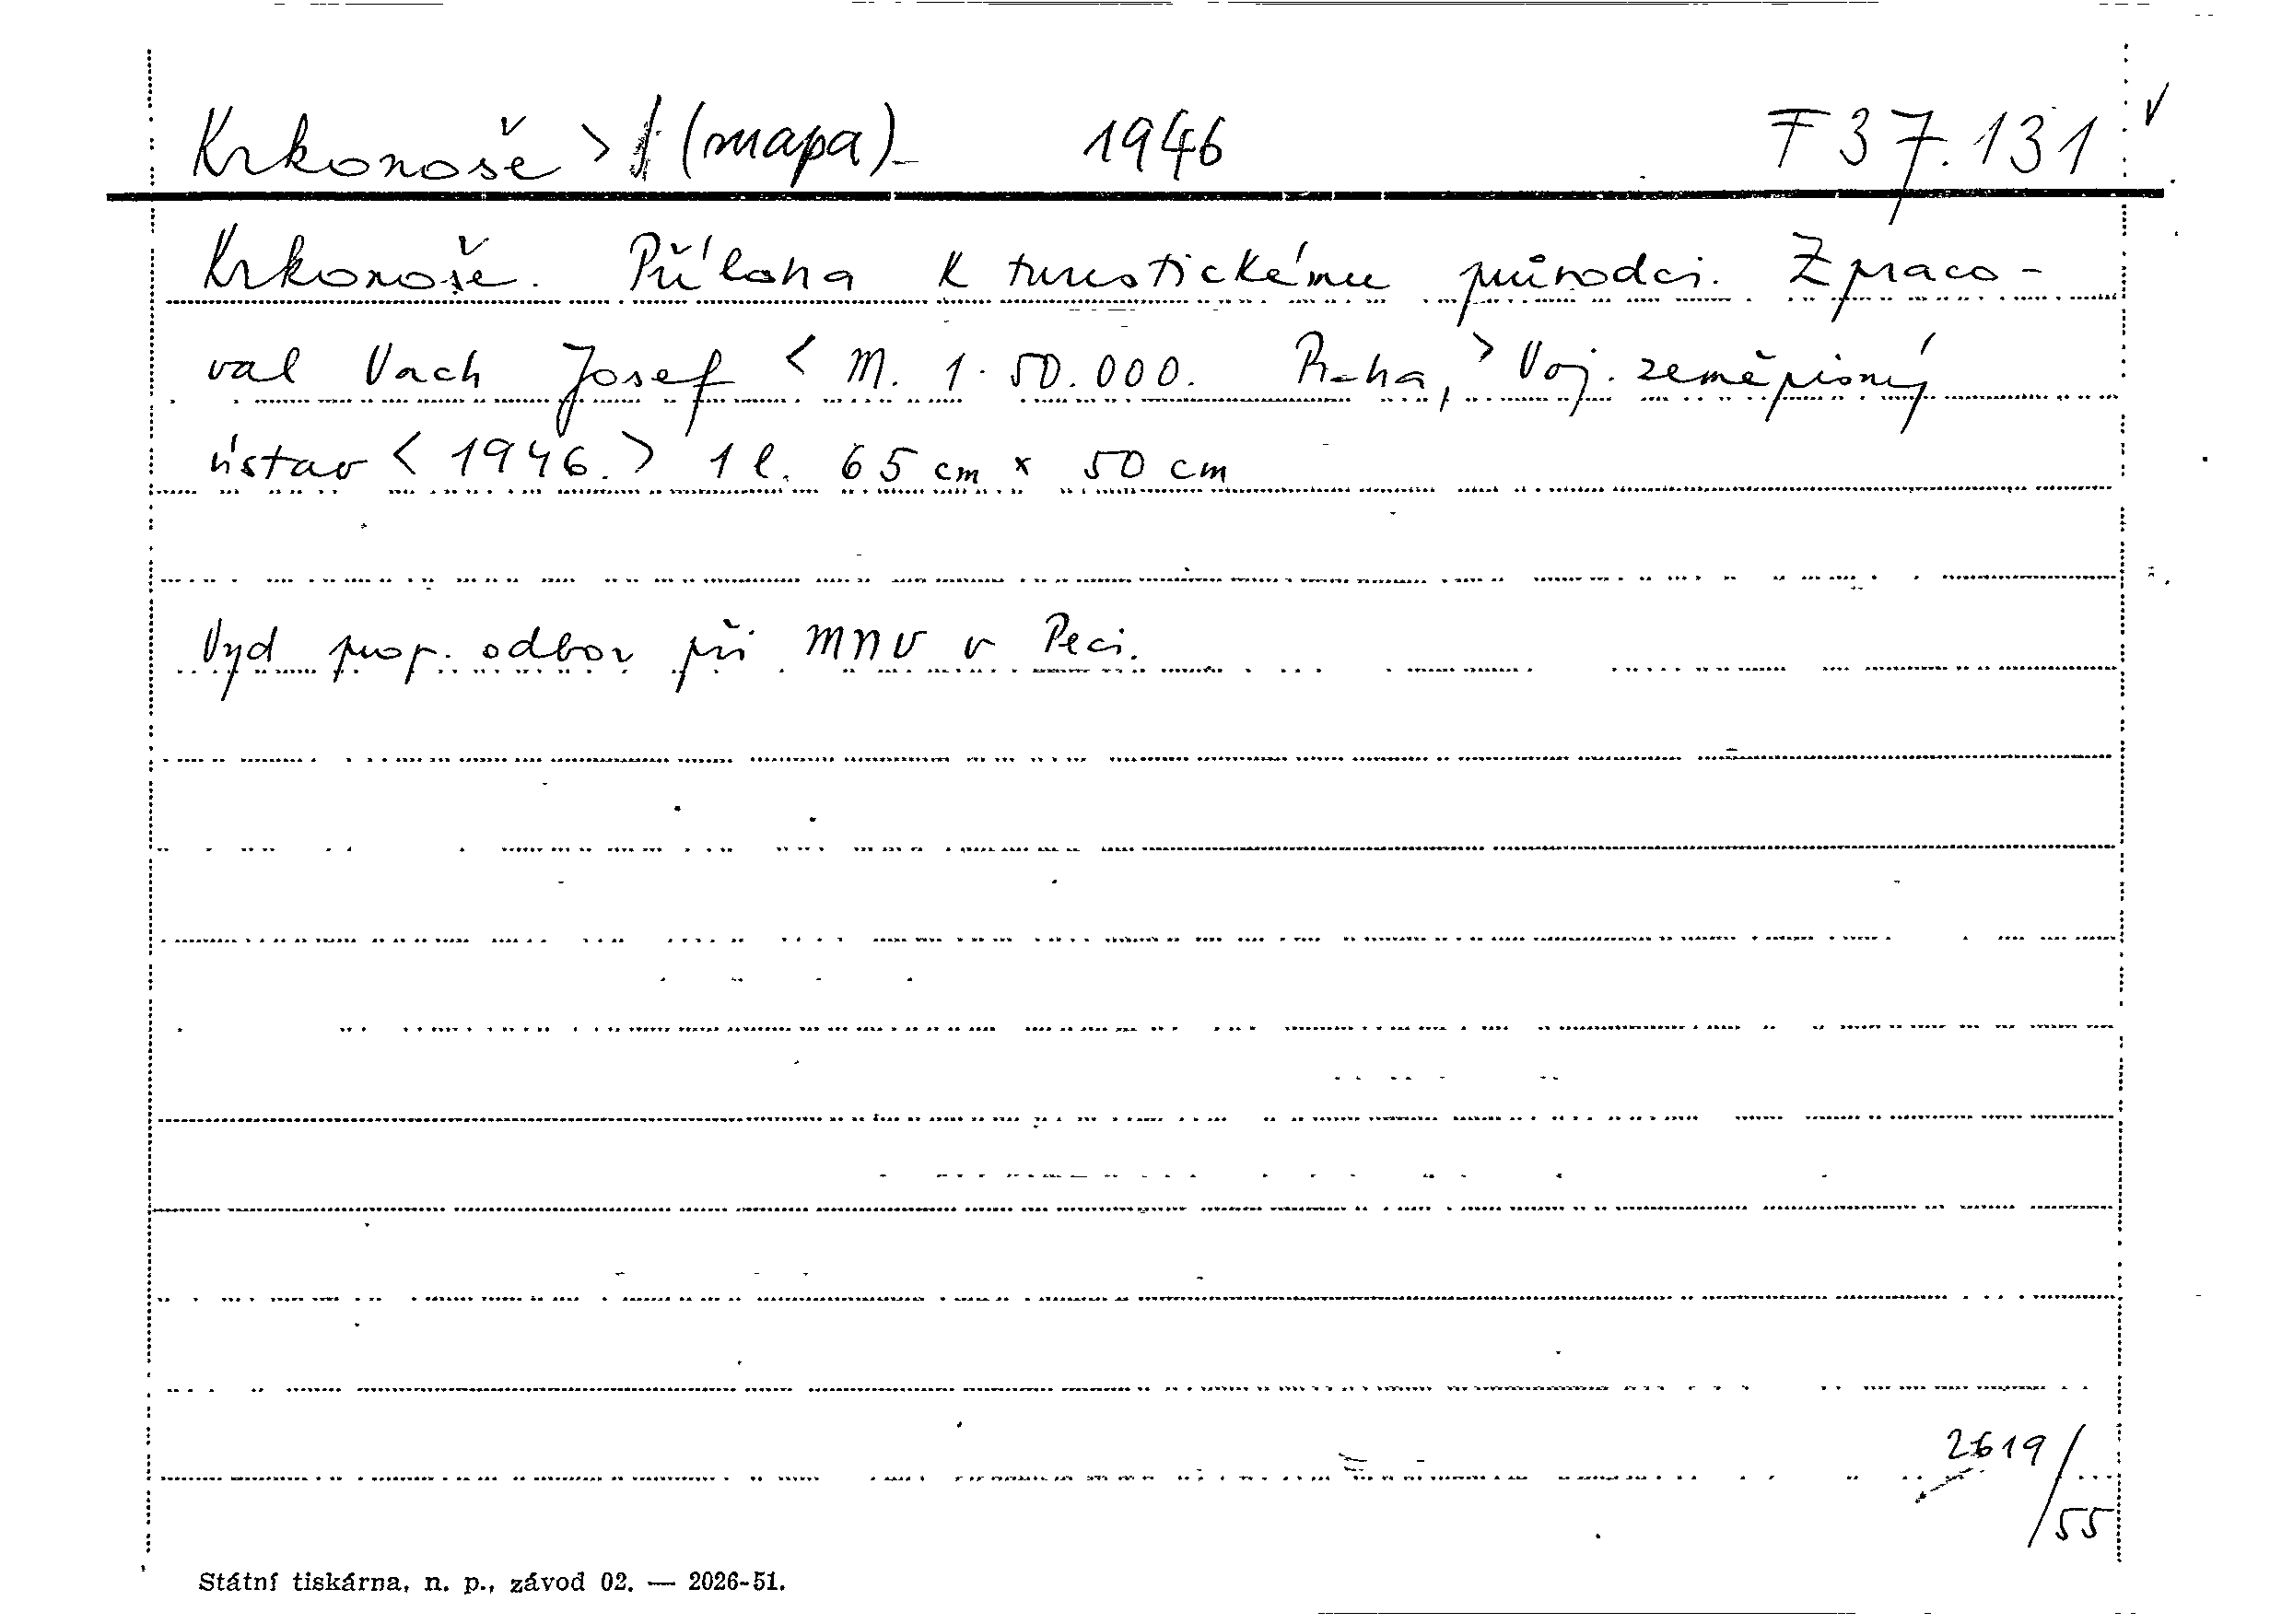 Krkonoše > (mapa) 1946 F 37.131 v
Krkonoše. Příloha k turistickému průvodci. Zpraco-
val Vach Josef < M. 1:50.000. Praha, > Voj. zeměpisný
ústav < 1946. > 1 l. 65 cm x 50 cm
Vyd prop. odbor při MNV v Peci.
2619/55
Státní tiskárna, n. p., závod 02. — 2026-51.